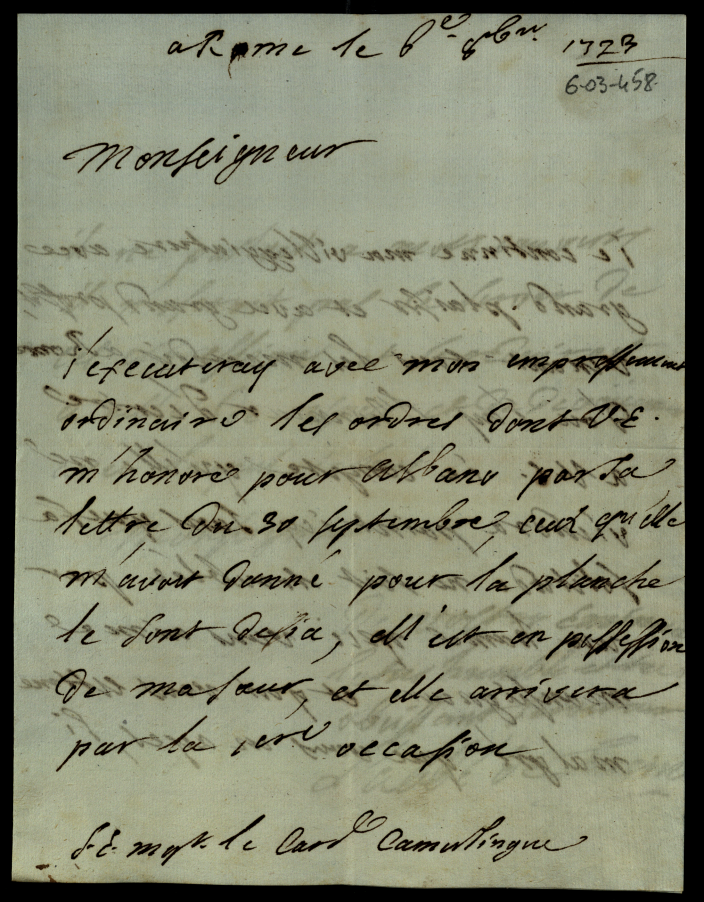 a Rome le 6e 8bre 1723
6-03-458
Monseigneur
j'executeray avec mon empressement
ordinaire les ordres dont V.E.
m'honore pour Albano par sa
lettre du 30 septembre, ceux qu'elle
m'avoit donné pour la planche
le sont desia, ell'est en possession
de ma soeur, et elle arrivera
par la 1ere occasion
S.E. mgr. le Card. Camerlingue